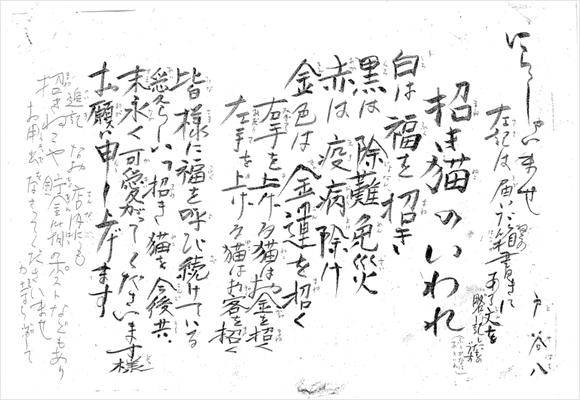 いらっしゃいませ
戸谷八
左記は届いた箱書きに
ある文を
招き猫のいわれ
白は福を招き
黒は除難免災
赤は疫病除け
金色は金運を招く
右手を上げる猫はお金を招く
左手を上げる猫はお客を招く
皆様に福を呼び続けている
愛らしい招き猫を今後共
末永く可愛がってくださいます様
お願い申し上げます
追記 なお店内にも
招きねこや貯金箱のポストなどもあり